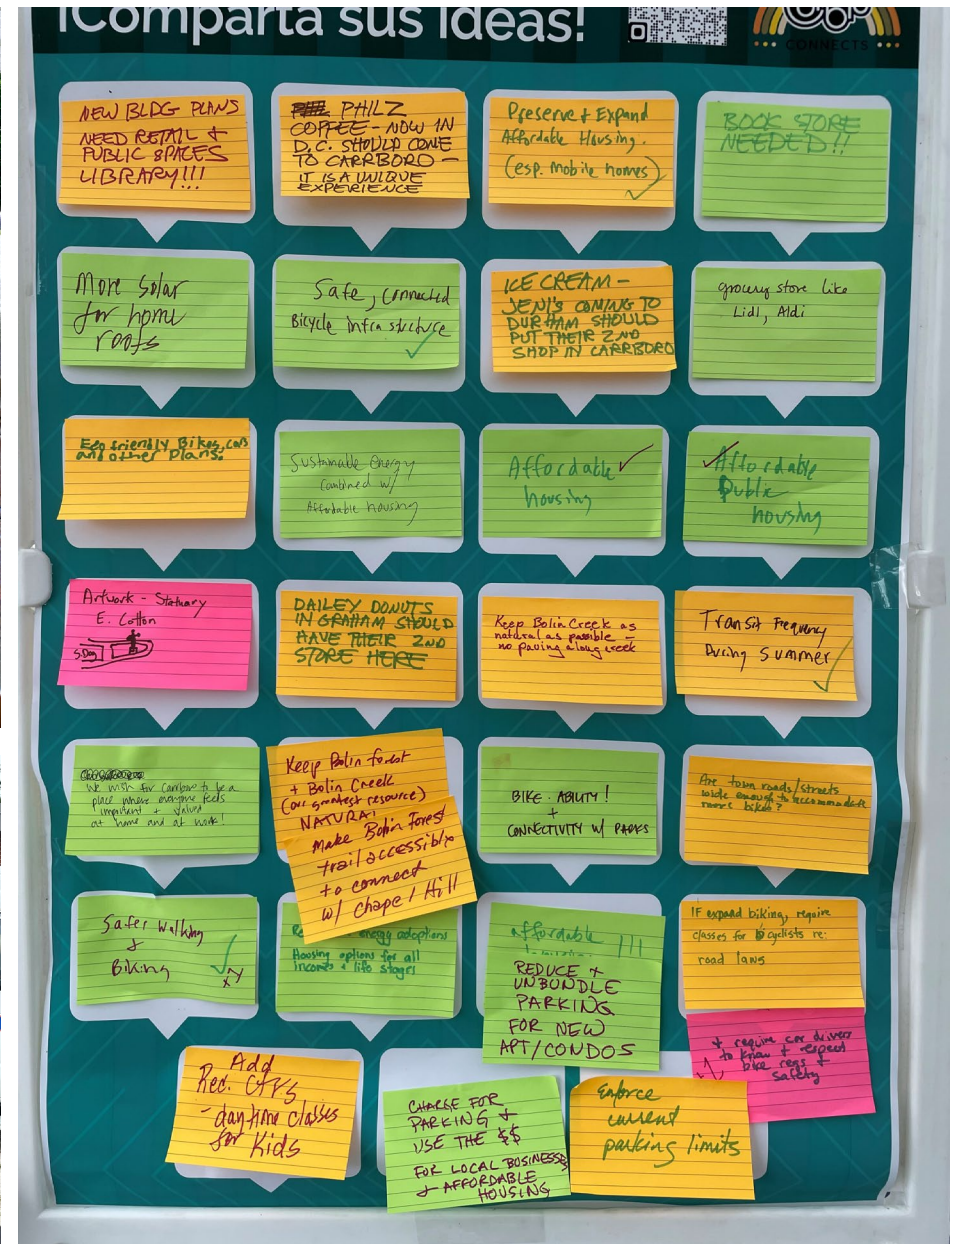 ¡Comparta sus ideas!
CONNECTS
NEW BLDG PLANS
NEED RETAIL +
PUBLIC SPACES
LIBRARY!!!
PHILZ
COFFEE - NOW IN
D.C. SHOULD COME
TO CARRBORO -
IT IS A UNIQUE
EXPERIENCE
Preserve + Expand
Affordable Housing.
(esp. mobile homes)
BOOK STORE
NEEDED!!
More solar
for home
roofs
Safe, connected
Bicycle infrastructure
ICE CREAM -
JENI'S COMING TO
DURHAM SHOULD
PUT THEIR 2ND
SHOP IN CARRBORO
grocery store like
Lidl, Aldi
Eco friendly Bikes, cars
and other Plans.
Sustainable energy
combined w/
Affordable housing
Affordable
housing
Affordable
Public
housing
Artwork - Statuary
E. Cotton
DAILEY DONUTS
IN GRAHAM SHOULD
HAVE THEIR 2ND
STORE HERE
Keep Bolin Creek as
natural as possible -
no paving along creek
Transit Frequency
During Summer
We wish for Carrboro to be a
place where everyone feels
important + valued
at home and at work!
Keep Bolin forest
+ Bolin Creek
(our greatest resource)
NATURAL
Make Bolin Forest
trail accessible
to connect
w/ Chapel Hill
BIKE-ABILITY!
+
CONNECTIVITY W/ PARKS
Are town roads/streets
wide enough to accommodate
more bikes?
Safer Walking
&
Biking
energy adoptions
Housing options for all
incomes + life stages
affordable
!!!
REDUCE +
UNBUNDLE
PARKING
FOR NEW
APT/CONDOS
IF expand biking, require
classes for bicyclists re:
road laws
+ require car drivers
to know + respect
bike regs +
safety
Add
Rec. CTRS
- daytime classes
for Kids
CHARGE FOR
PARKING +
USE THE $$
FOR LOCAL BUSINESSES
+ AFFORDABLE
HOUSING
Enforce
current
parking limits